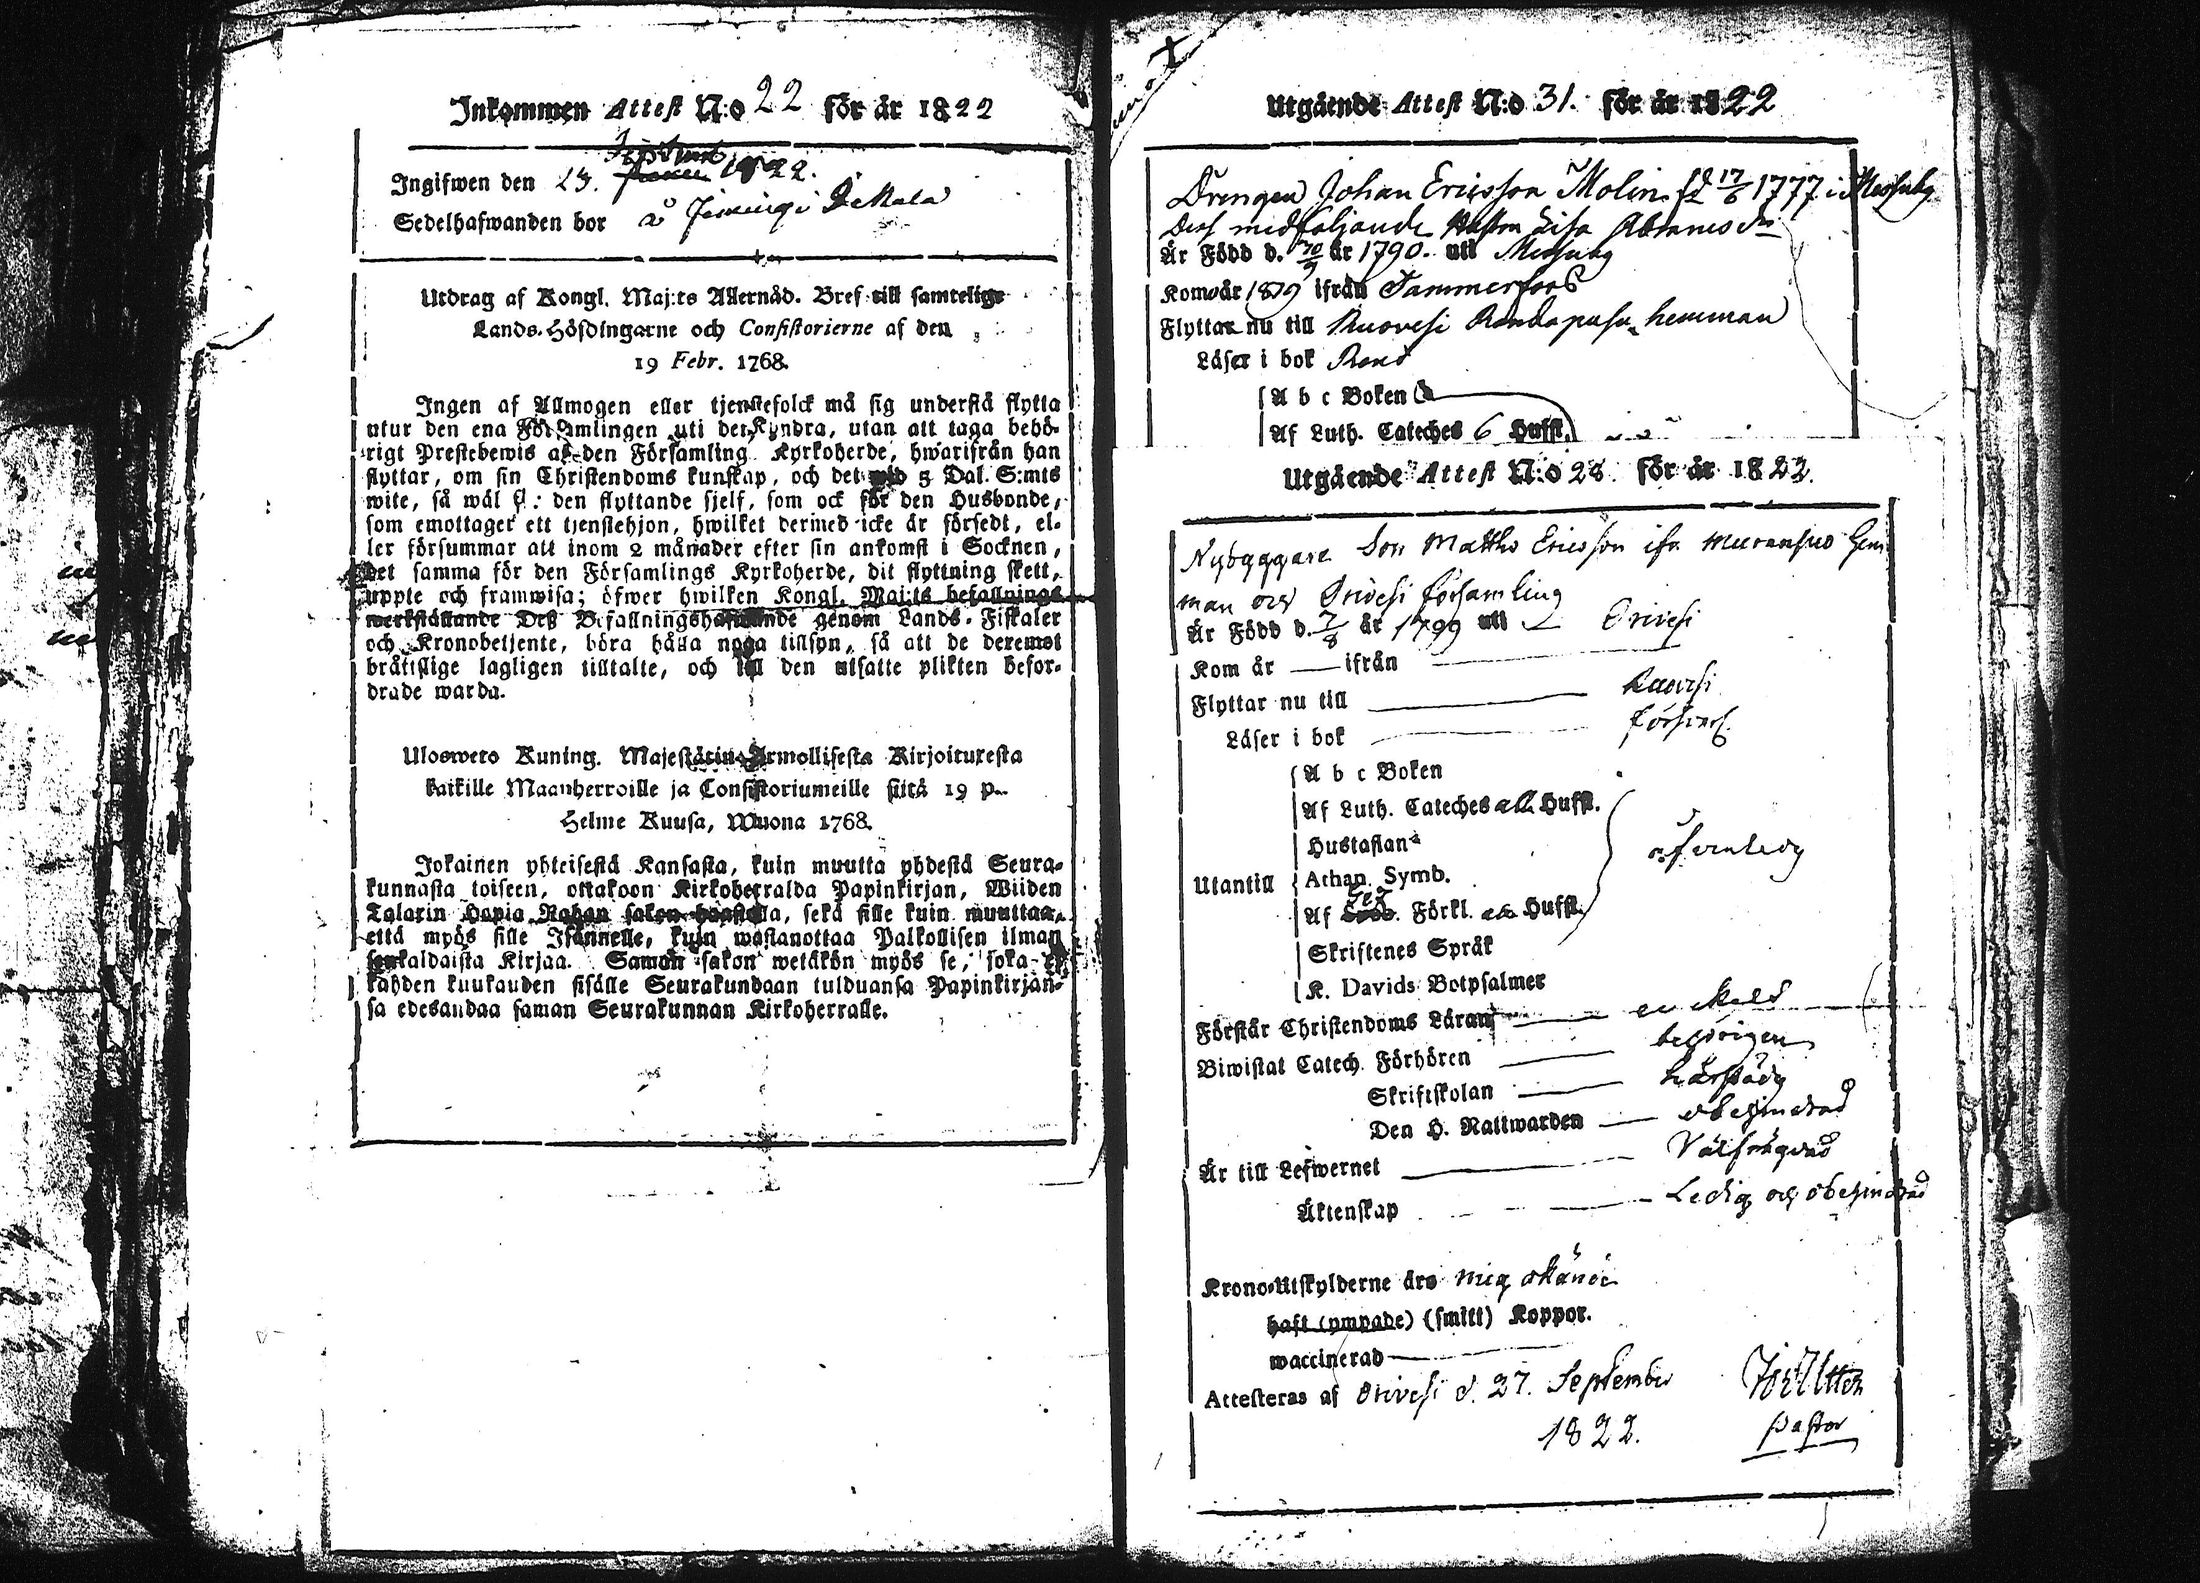 Inkommen Attest N:o 22 för år 1822
Ingifwen den 23. Septemb 1822.
Sedelhafwanden bor å i
Utdrag af Kongl. Maj:ts Allernåd. Bref till samtelige
Lands-Höfdingarne och Consistorierne af den
19 Febr. 1768.
Ingen af Allmogen eller tjenstefolck må sig understå flytta
utur den ena Församlingen uti den Andra, utan att taga behö-
rigt Prestebewis af den Församling Kyrkoherde, hwarifrån han
flyttar, om sin Christendoms kunskap, och det wid 5 Dal. S:mts
wite, så wäl f: den flyttande sjelf, som ock för den Husbonde,
som emottager ett tjenstehjon, hwilket dermed icke är försedt, el-
ler försummar att inom 2 månader efter sin ankomst i Socknen,
det samma för den Församlings Kyrkoherde, dit flyttning skett,
uppte och framwisa; öfwer hwilken Kongl. Maj:ts befallnings
werkställande Deß Befallningshafwande genom Lands-Fiskaler
och Kronobetjente, böra hålla noga tillsyn, så att de deremot
bråttslige lagligen tilltalte, och till den utsatte plikten befor-
drade warda.
Ulosweto Kuning. Majestätin Armollisesta Kirjoituresta
kaikille Maanherroille ja Consistoriumeille siitä 19 p.
Helme Kuusa, Wuona 1768.
Jokainen yhteisestä Kansasta, kuin muutta yhdestä Seura-
kunnasta toiseen, ottakoon Kirkoherralda Papinkirjan, Wiiden
Talarin Hopia Rahan sakon haastolla, sekä sille kuin muuttaa,
että myös sille Isännelle, kuin wastanottaa Palkollisen ilman
senkaldaista Kirjaa. Saman sakon wetäkön myös se, joka ei
kahden kuukauden sisälle Seurakundaan tulduansa Papinkirjan-
sa edesandaa saman Seurakunnan Kirkoherralle.
Utgående Attest N:o 31. för år 1822
Drengen Johan Ericsson Molin fd 17/6 1777 i Messuby
Dess medföljande Hustru Lisa Abrams dr
Är Född d. 10/9 år 1790. uti Messuby
Kom år 1819 ifrån Tammerfors
Flyttar nu till Ruovesi hemman
Läser i bok Rent
A b c Boken
Af Luth. Cateches 6 Hufst.
Utgående Attest N:o 28. för år 1822.
Nybyggare Son Matths Ericsson ifr Muransuo hem
man och Orivesi församling
Är Född d. 7/8 år 1799 uti Orivesi
Kom år — ifrån
Flyttar nu till Ruovesi
Läser i bok försvarl.
A b c Boken
Af Luth. Cateches alla Hufst.
Hustaflan
Utantill Athan. Symb.
Af Förkl. alla Hufst.
Skriftenes Språk
K. Davids Botpsalmer
Förstår Christendoms Läran enskeldt
Biwistat Catech. Förhören behörigen
Skriftskolan
Den H. Nattwarden obehindrad
Är till Lefwernet Välfrägdad
Äktenskap Ledig och obehindrad
Krono-Utskylderne äro mig okände
haft (ympade) (smitt) Koppor.
waccinerad
Attesteras af Orivesi d. 27. September
1822.
Pastor